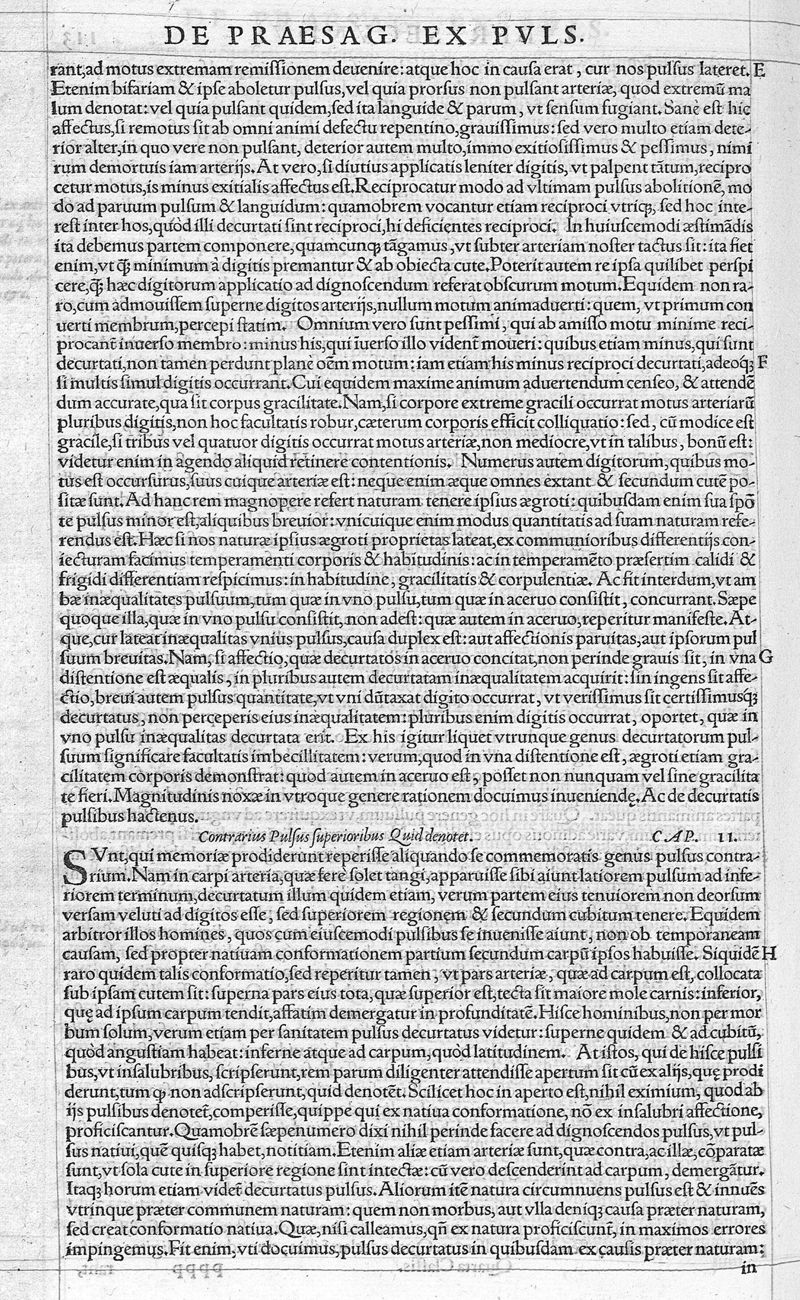 DE PRAESAG. EX PVLS.
rant,ad motus extremam remissionem deuenire:atque hoc in causa erat, cur nos pulsus lateret. E
Etenim bifariam & ipse aboletur pulsus,vel quia prorsus non pulsant arteriæ, quod extremũ ma
lum denotat:vel quia pulsant quidem,sed ita languide & parum, vt sensum fugiant. Sanè est hic
affectus,si remotus sit ab omni animi defectu repentino,grauissimus:sed vero multo etiam dete-
rior alter,in quo vere non pulsant, deterior autem multo,immo exitiosissimus & pessimus, nimi
rum demortuis iam arterijs. At vero,si diutius applicatis leniter digitis, vt palpent tãtum,recipro
cetur motus,is minus exitialis affectus est.Reciprocatur modo ad vltimam pulsus abolitionẽ, mo
do ad paruum pulsum & languidum: quamobrem vocantur etiam reciproci vtriq;, sed hoc inte-
rest inter hos,quòd illi decurtati sint reciproci,hi deficientes reciproci. In huiuscemodi æstimãdis
ita debemus partem componere,quamcunq; tãgamus,vt subter arteriam noster tactus sit:ita fiet
enim,vt q̃ minimum à digitis premantur & ab obiecta cute.Poterit autem re ipsa quilibet perspi
cere,q̃ hæc digitorum applicatio ad dignoscendum referat obscurum motum.Equidem non ra-
ro,cum admouissem superne digitos arterijs,nullum motum animaduerti: quem, vt primum con
uerti membrum,percepi statim. Omnium vero sunt pessimi, qui ab amisso motu minime reci-
procant̃ inuerso membro:minus his,qui ĩuerso illo vident̃ moueri: quibus etiam minus,qui sunt
decurtati,non tamen perdunt planè oẽm motum:iam etiam his minus reciproci decurtati,adeoq; F
si multis simul digitis occurrant.Cui equidem maxime animum aduertendum censeo, & attendẽ
dum accurate,qua sit corpus gracilitate.Nam,si corpore extreme gracili occurrat motus arteriarũ
pluribus digitis,non hoc facultatis robur,cæterum corporis efficit colliquatio:sed, cũ modice est
gracile,si tribus vel quatuor digitis occurrat motus arteriæ,non mediocre,vt in talibus, bonũ est:
videtur enim in agendo aliquid retinere contentionis. Numerus autem digitorum,quibus mo-
tus est occursurus,suus cuique arteriæ est: neque enim æque omnes extant & secundum cutẽ po-
sitæ sunt. Ad hanc rem magnopere refert naturam tenere ipsius ægroti: quibusdam enim sua spõ
te pulsus minor est,aliquibus breuior:vnicuique enim modus quantitatis ad suam naturam refe-
rendus est.Hæc si nos naturæ ipsius ægroti proprietas lateat,ex communioribus differentijs con-
iecturam facimus temperamenti corporis & habitudinis: ac in temperamẽto præsertim calidi &
frigidi differentiam respicimus:in habitudine, gracilitatis & corpulentiæ. Ac fit interdum,vt am
bæ inæqualitates pulsuum,tum quæ in vno pulsu,tum quæ in aceruo consistit, concurrant. Sæpe
quoque illa,quæ in vno pulsu consistit, non adest: quæ autem in aceruo,reperitur manifeste. At-
que,cur lateat inæqualitas vnius pulsus,causa duplex est:aut affectionis paruitas,aut ipsorum pul
suum breuitas. Nam, si affectio,quæ decurtatos in aceruo concitat,non perinde grauis sit, in vna G
distentione est æqualis, in pluribus autem decurtatam inæqualitatem acquirit:sin ingens sit affe-
ctio,breui autem pulsus quantitate,vt vni dũtaxat digito occurrat, vt verissimus sit certissimusq;
decurtatus, non perceperis eius inæqualitatem:pluribus enim digitis occurrat, oportet, quæ in
vno pulsu inæqualitas decurtata erit. Ex his igitur liquet vtrunque genus decurtatorum pul-
suum significare facultatis imbecillitatem: verum,quod in vna distentione est, ægroti etiam gra-
cilitatem corporis demonstrat: quod autem in aceruo est, posset non nunquam vel sine gracilita
te fieri. Magnitudinis noxæ in vtroque genere rationem docuimus inueniendę. Ac de decurtatis
pulsibus hactenus.
Contrarius Pulsus superioribus Quid denotet. CAP. 11.
SVnt,qui memoriæ prodiderunt reperisse aliquando se commemoratis genus pulsus contra-
rium. Nam in carpi arteria,quæ fere solet tangi,apparuisse sibi aiunt latiorem pulsum ad infe-
riorem terminum,decurtatum illum quidem etiam, verum partem eius tenuiorem non deorsum
versam veluti ad digitos esse, sed superiorem regionem & secundum cubitum tenere. Equidem
arbitror illos homines, quos cum eiuscemodi pulsibus se inuenisse aiunt, non ob temporaneam
causam, sed propter natiuam conformationem partium secundum carpũ ipsos habuisse. Siquidẽ H
raro quidem talis conformatio,sed reperitur tamen, vt pars arteriæ, quæ ad carpum est, collocata
sub ipsam cutem sit: superna pars eius tota,quæ superior est,tecta sit maiore mole carnis:inferior,
quę ad ipsum carpum tendit,affatim demergatur in profunditatẽ.Hisce hominibus,non per mor
bum solum,verum etiam per sanitatem pulsus decurtatus videtur: superne quidem & ad cubitũ,
quòd angustiam habeat: inferne atque ad carpum,quòd latitudinem. At istos, qui de hisce pulsi
bus,vt insalubribus, scripserunt,rem parum diligenter attendisse apertum sit cũ ex alijs,quę prodi
derunt,tum q̃ non adscripserunt,quid denotẽt.Scilicet hoc in aperto est,nihil eximium, quod ab
ijs pulsibus denotet̃,comperisse,quippe qui ex natiua conformatione, nõ ex insalubri affectione,
proficiscantur.Quamobrẽ sæpenumero dixi nihil perinde facere ad dignoscendos pulsus,vt pul-
sus natiui,quẽ quisq; habet,notitiam.Etenim aliæ etiam arteriæ sunt,quæ contra,ac illæ,cõparatæ
sunt,vt sola cute in superiore regione sint intectæ: cũ vero descenderint ad carpum, demergãtur.
Itaq; horum etiam videt̃ decurtatus pulsus. Aliorum itẽ natura circumnuens pulsus est & innuẽs
vtrinque præter communem naturam: quem non morbus, aut vlla deniq; causa præter naturam,
sed creat conformatio natiua. Quæ,nisi calleamus,qñ ex natura proficiscunt̃, in maximos errores
impingemus. Fit enim, vti docuimus,pulsus decurtatus in quibusdam ex causis præter naturam:
in